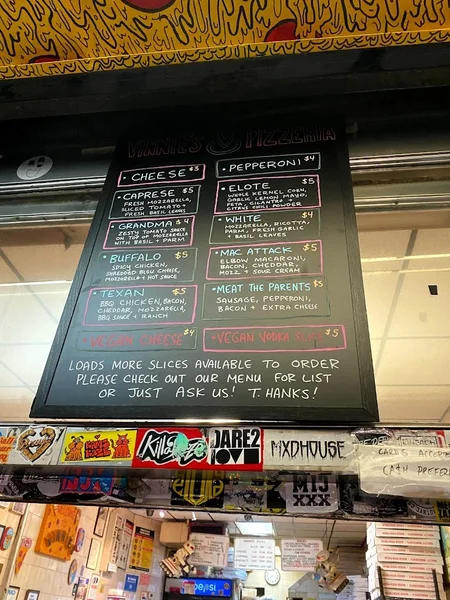 VINNIE'S PIZZERIA
CHEESE $3
CAPRESE $5
FRESH MOZZARELLA,
SLICED TOMATO +
FRESH BASIL LEAVES
GRANDMA $4
ZESTY TOMATO SAUCE
ON TOP OF MOZZARELLA
WITH BASIL + PARM
BUFFALO $5
SPICY CHICKEN,
SHREDDED BLEU CHEESE,
MOZZARELLA + HOT SAUCE
TEXAN $5
BBQ CHICKEN, BACON,
CHEDDAR, MOZZARELLA,
BBQ SAUCE + RANCH
VEGAN CHEESE $4
PEPPERONI $4
ELOTE $5
WHOLE KERNEL CORN,
GARLIC LEMON MAYO,
FETA, CILANTRO +
CITRUS CHILI POWDER
WHITE $4
MOZZARELLA, RICOTTA,
PARM, FRESH GARLIC
+ BASIL LEAVES
MAC ATTACK $5
ELBOW MACARONI,
BACON, CHEDDAR,
MOZZ. + SOUR CREAM
MEAT THE PARENTS $5
SAUSAGE, PEPPERONI,
BACON + EXTRA CHEESE
VEGAN VODKA SLICE $5
LOADS MORE SLICES AVAILABLE TO ORDER
PLEASE CHECK OUT OUR MENU FOR LIST
OR JUST ASK US! THANKS!
DARE2
MXDHOUSE
CARDS ACCEPTED
CASH PREFERRED
MTJ
XXX
pepsi